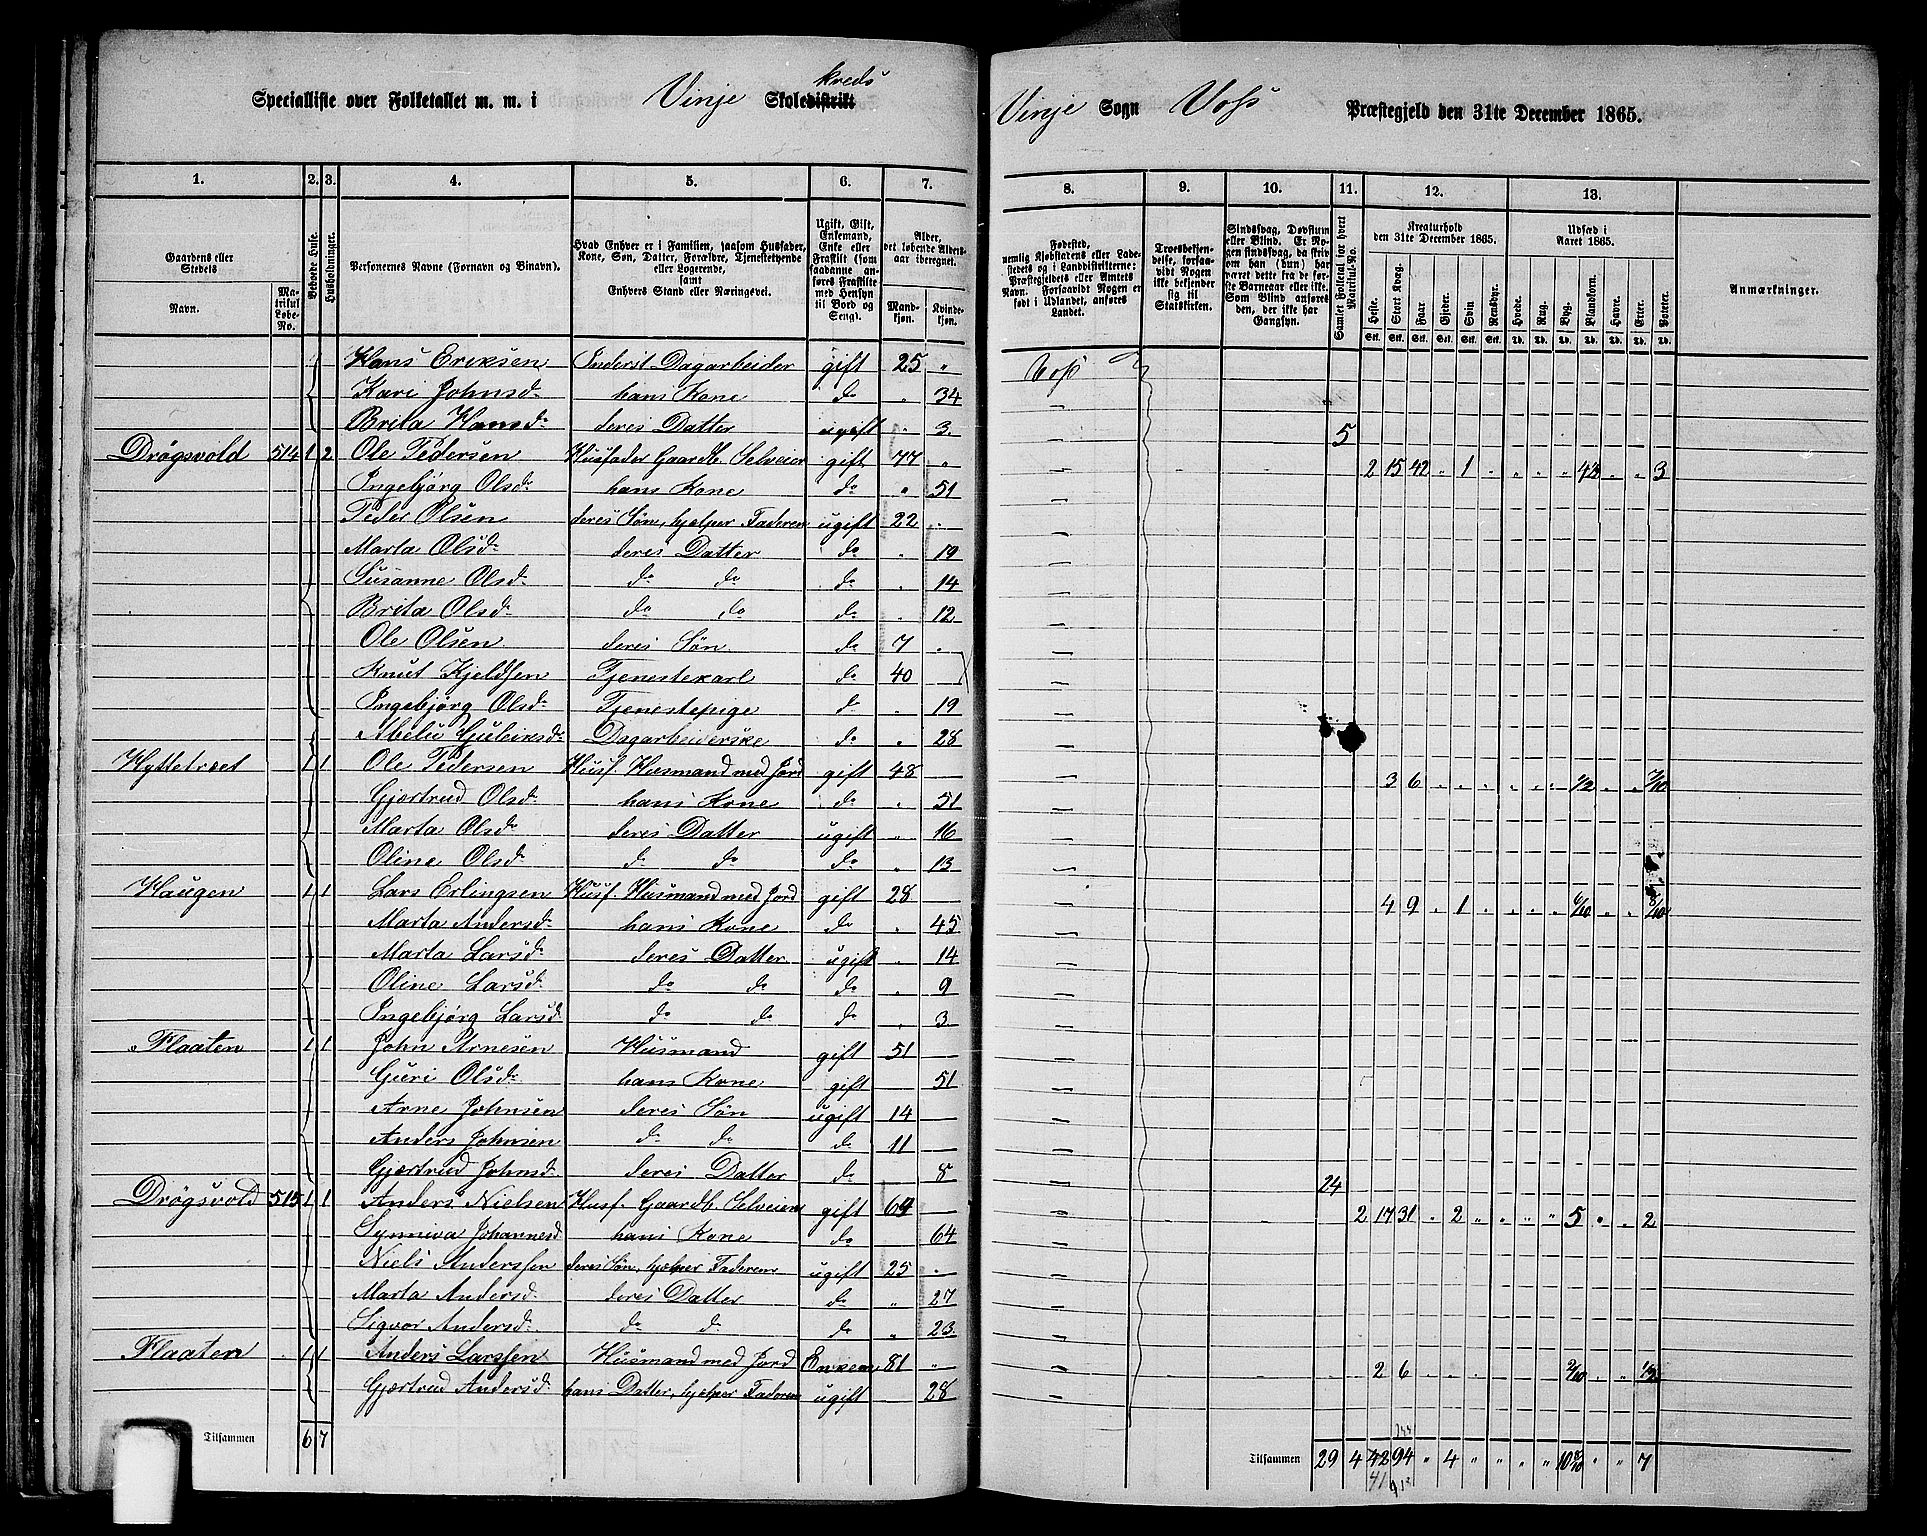 Specialliste over Folketallet m. m. i Vinje Skoledistrikt kreds
Vinje Sogn Voss Præstegjeld den 31te December 1865.
1. 2. 3. 4. 5. 6. 7. 8. 9. 10. 11. 12. 13.
Gaardens eller Stedets
Navn.
Matrikul Løbe-No.
Beboede Huse.
Husholdninger.
Personernes Navne (Fornavn og Binavn).
Hvad Enhver er i Familien, saasom Husfader, Kone, Søn, Datter, Forældre, Tjenestetyende eller Logerende, samt Enhvers Stand eller Næringsvei.
Ugift, Gift, Enkemand, Enke eller Fraskilt (som saadanne anføres Fraskilte med Hensyn til Bord og Seng).
Alder, det løbende Aldersaar iberegnet.
Mandkjøn.
Kvindekjøn.
Fødested, nemlig Kjøbstadens eller Ladestedets og i Landdistrikterne: Præstegjeldets eller Amtets Navn. Forsaavidt Nogen er født i Udlandet, anføres Landet.
Troesbekjendelse, forsaavidt Nogen ikke bekjender sig til Statskirken.
Sindssvag, Døvstum eller Blind. Er Nogen sindssvag, da skriv om han (hun) har været dette fra de første Barneaar eller ikke. Som Blind anføres den, der ikke har Gangsyn.
Samlet Folketal for hvert Matrikul-No.
Kreaturhold den 31te December 1865.
Heste. Stort Kvæg. Faar. Gjeder. Svin. Rensdyr.
Udsæd i Aaret 1865.
Hvede. Rug. Byg. Blandkorn. Havre. Erter. Poteter.
Anmærkninger.
Hans Eriksen Inderst Dagarbeider gift 25 " Voss
Kari Johnsd. hans Kone do . 34 —
Brita Hansd. deres Datter ugift . 3. — 5
Drøgsvold 514 1 2 Ole Pedersen Husfader Gaardb. Selveier gift 77 " — 2 15 42 . 1 3
Ingebjørg Olsd. hans Kone do " 51 —
Peder Olsen deres Søn, hjelper Faderen ugift 22 . —
Marta Olsd. deres Datter do . 19 —
Susanne Olsd. do do do . 14 —
Brita Olsd. do do do . 12 —
Ole Olsen deres Søn do 7 . —
Knut Kjeldsen Tjenestekarl do 40 —
Ingebjørg Olsd. Tjenestepige do . 19 —
Dagarbeiderske do " 28 —
Hyttetræet 1 1 Ole Pedersen Husf. Husmand med Jord gift 48 — 3 6 1/2
Gjertrud Olsd. hans Kone do . 51 —
Marta Olsd. deres Datter ugift " 16 —
Oline Olsd. do do do . 13 —
Haugen 1 1 Lars Erlingsen Husf. Husmand med Jord gift 28 — 4 9 . 1 6/10
Marta Andersd. hans Kone do . 45 —
Marta Larsd. deres Datter ugift . 14 —
Oline Larsd. do do do . 9 —
Ingebjørg Larsd. do do do . 3 —
Flaaten 1 1 John Arnesen Husmand gift 51 —
Guri Olsd. hans Kone gift 51 —
Arne Johnsen deres Søn ugift 14 —
Anders Johnsen do do do 11 —
Gjertrud Johnsd. deres Datter do 8 — 24
Drøgsvold 515 1 1 Anders Nielsen Husf. Gaardb. Selveier gift 64 — 2 17 31 . 2 " " " " 5 . . 2
Synniva Johannesd. hans Kone do 64 —
Niels Anderssen deres Søn, hjelper Faderen ugift 25 . —
Marta Andersd. deres Datter do " 27 —
Sigvor Andersd. do do do " 23 —
Flaaten 1 1 Anders Larssen Husmand med Jord Enkem 81 " — 2 6 2/10 1/2
Gjertrud Andersd. hans Datter, hjelper Faderen ugift 28 —
Tilsammen 6 7
Tilsammen 29 4 42 94 " 4 " " " " " " 7
41